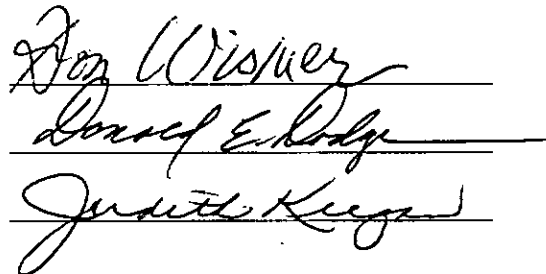 Don Wismer
Donald E. Dodge
Judith Keegan